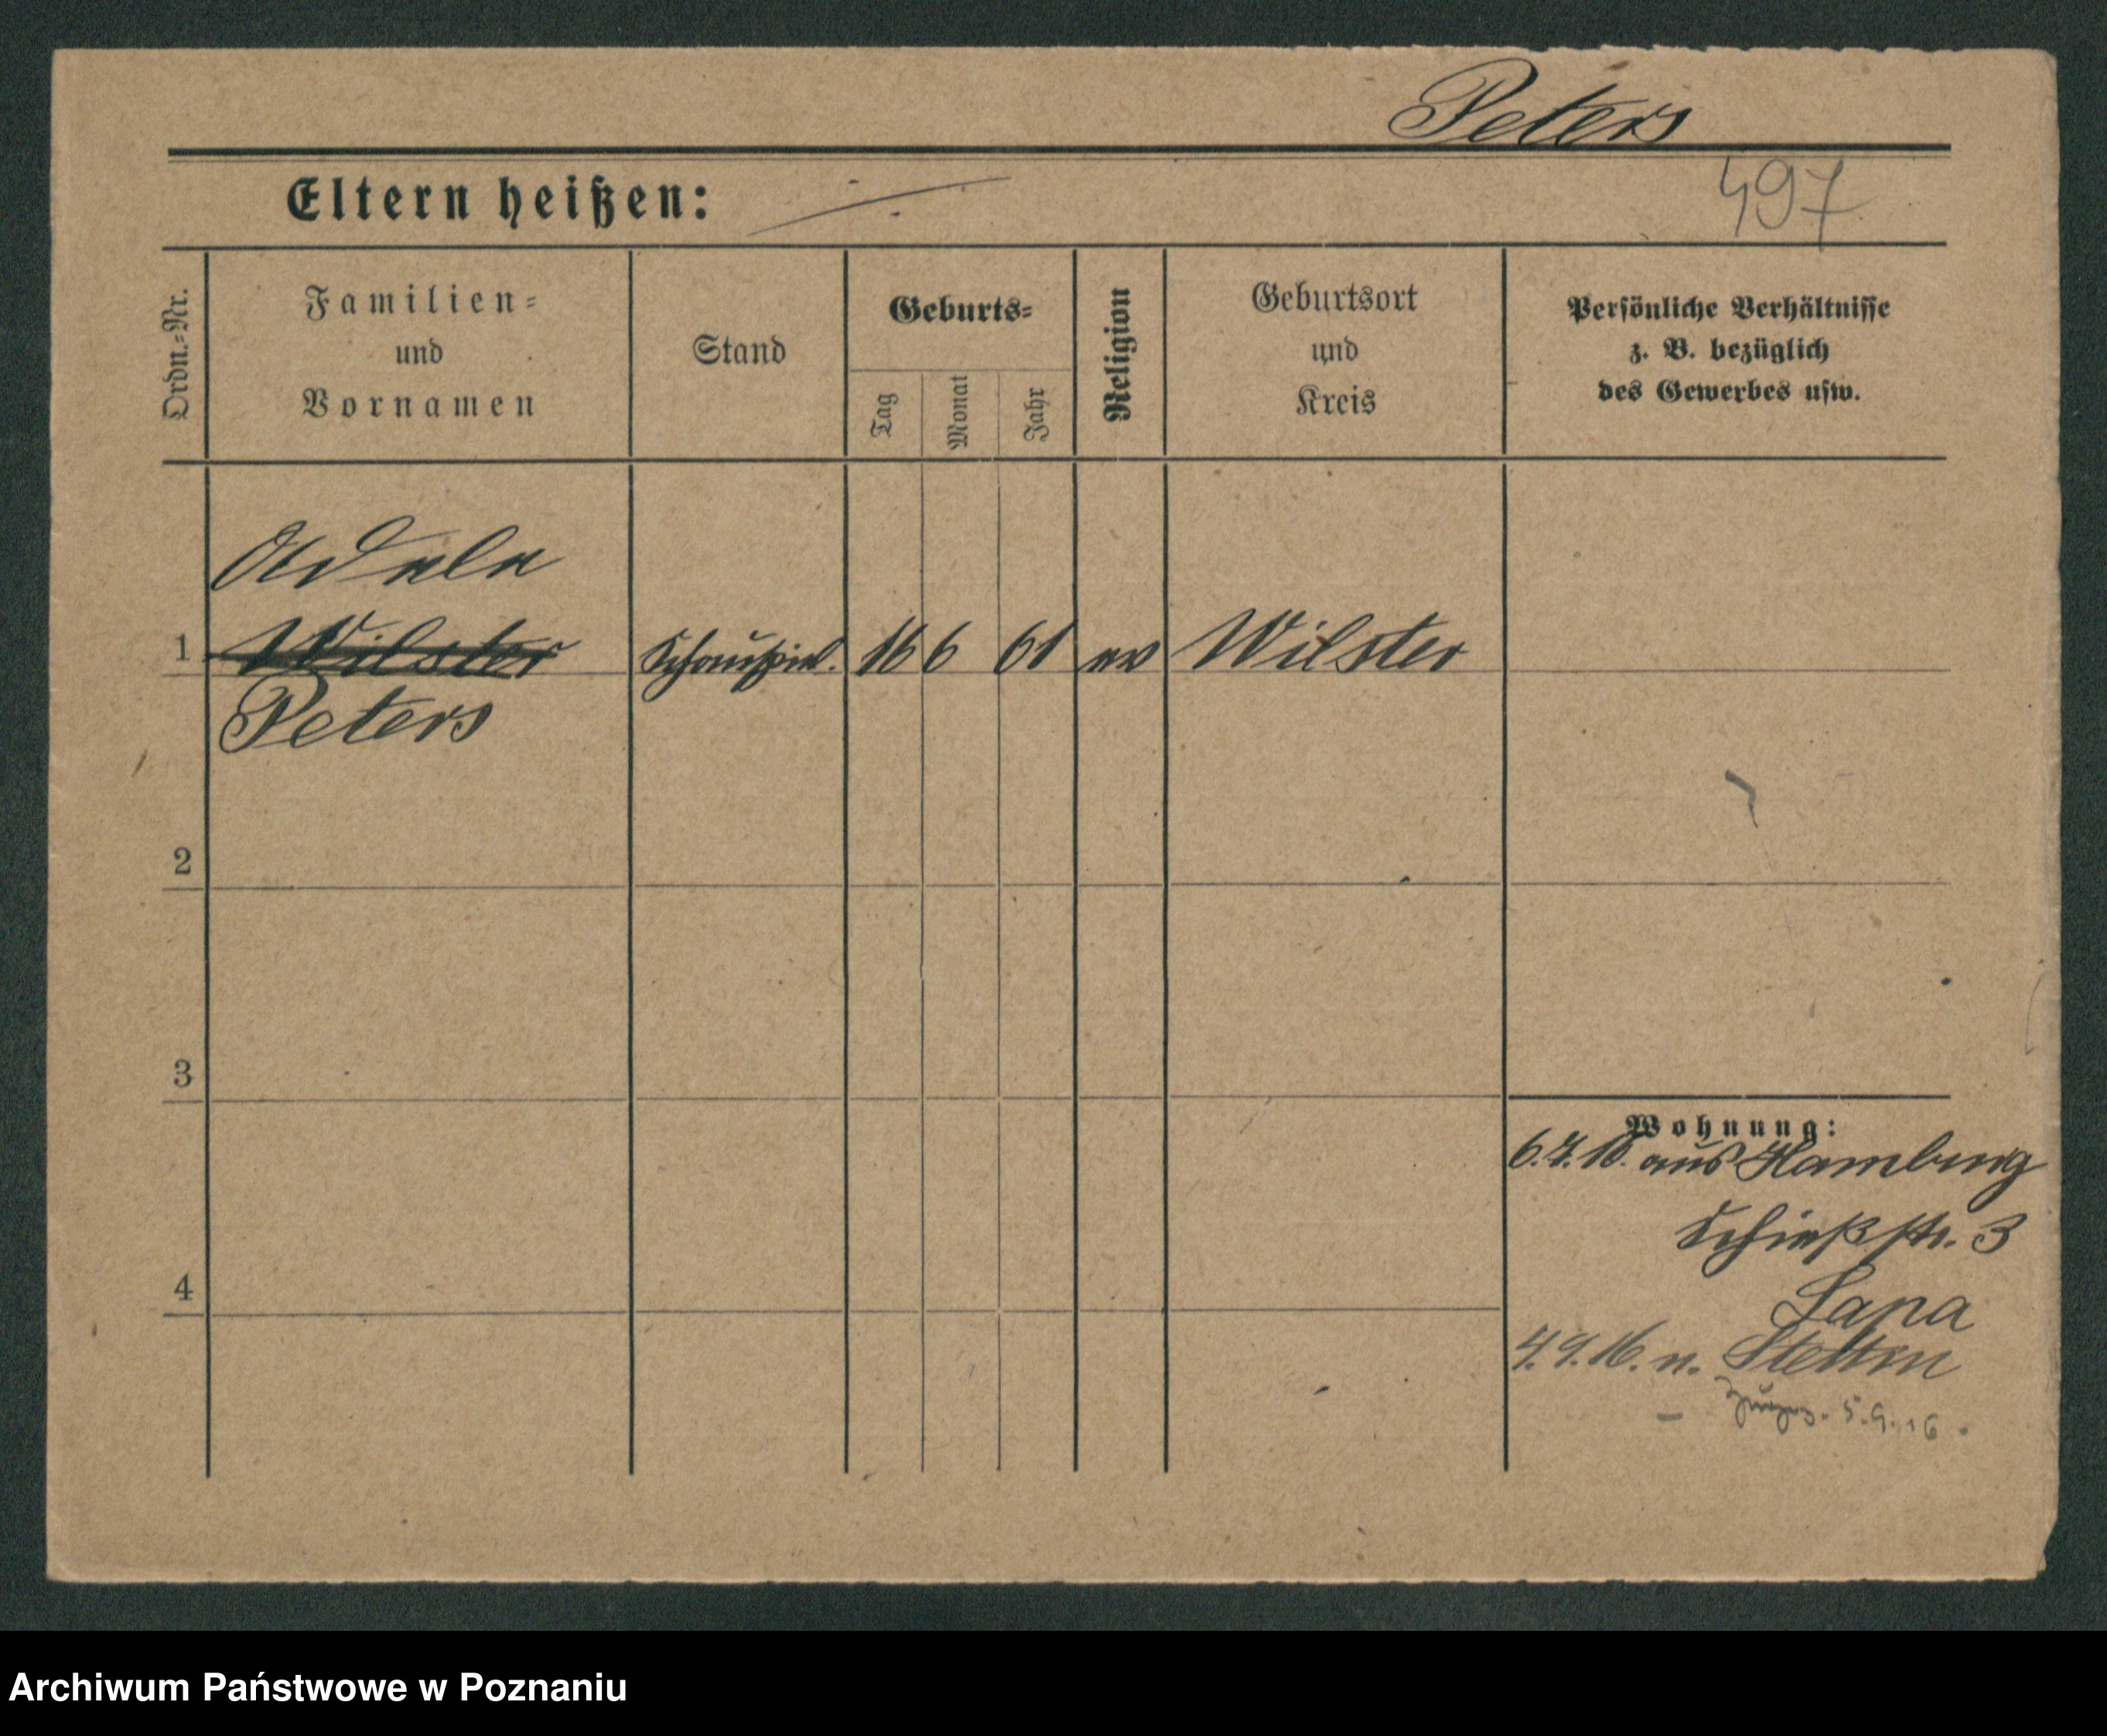 Peters
Eltern heißen:
497
Ordn.-Nr.
Familien-
und
Vornamen
Stand
Geburts-
Tag
Monat
Jahr
Religion
Geburtsort
und
Kreis
Persönliche Verhältnisse
z. B. bezüglich
des Gewerbes usw.
Adele
1 Wilster Schauspiel. 16 6 61 ev Wilster
Peters
2
3
4
Wohnung:
6.7.16. aus Hamburg
Schießstr. 3
4.9.16. n. Stettin
5.9.16.
Archiwum Państwowe w Poznaniu